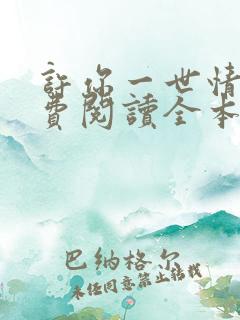 許你一世情
費閱讀全本
巴納格尔
未经同意禁止转载